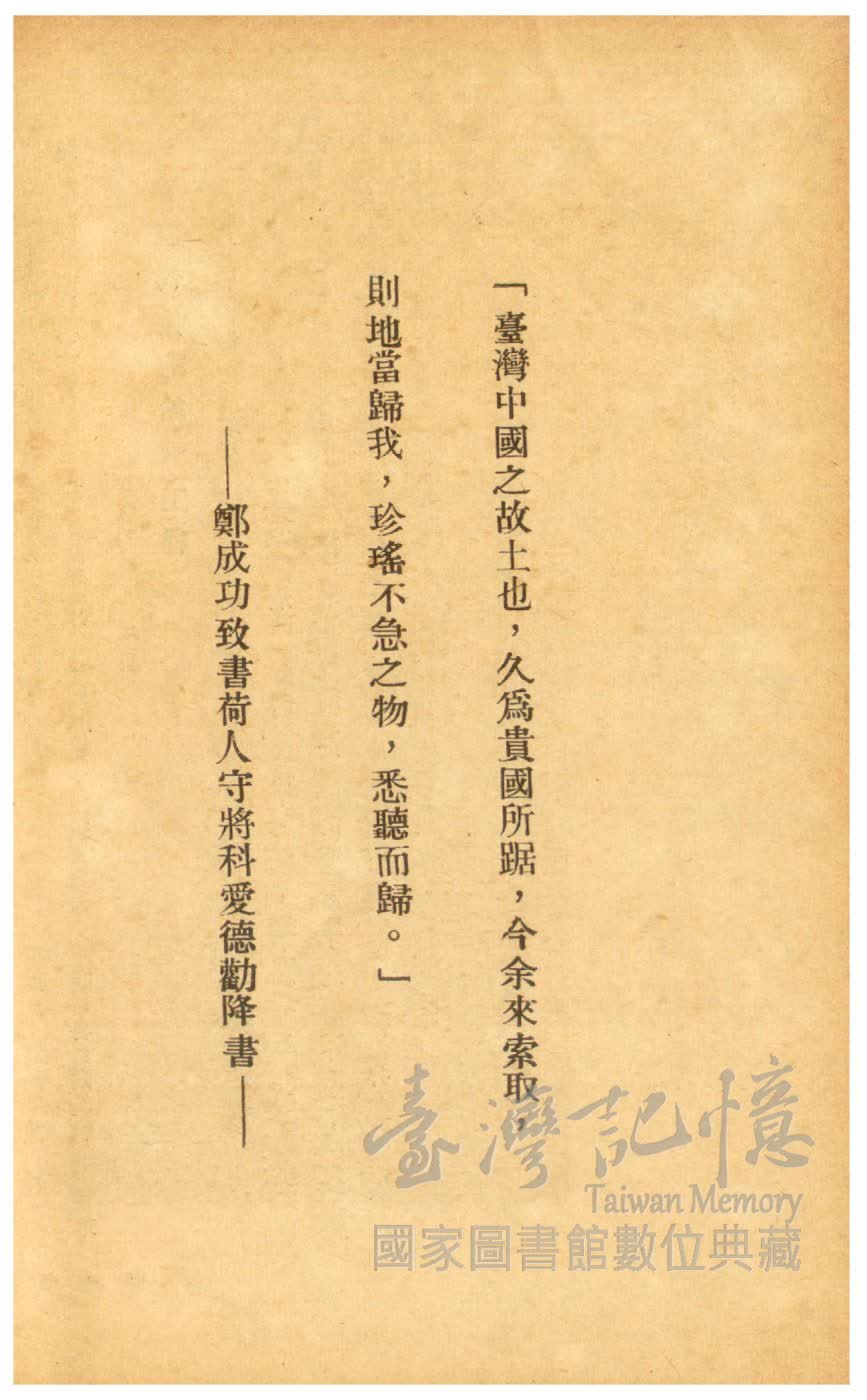 「臺灣中國之故土也，久爲貴國所踞，今余來索取，
則地當歸我，珍瑤不急之物，悉聽而歸。」
——鄭成功致書荷人守將科愛德勸降書——
臺灣記憶
Taiwan Memory
國家圖書館數位典藏